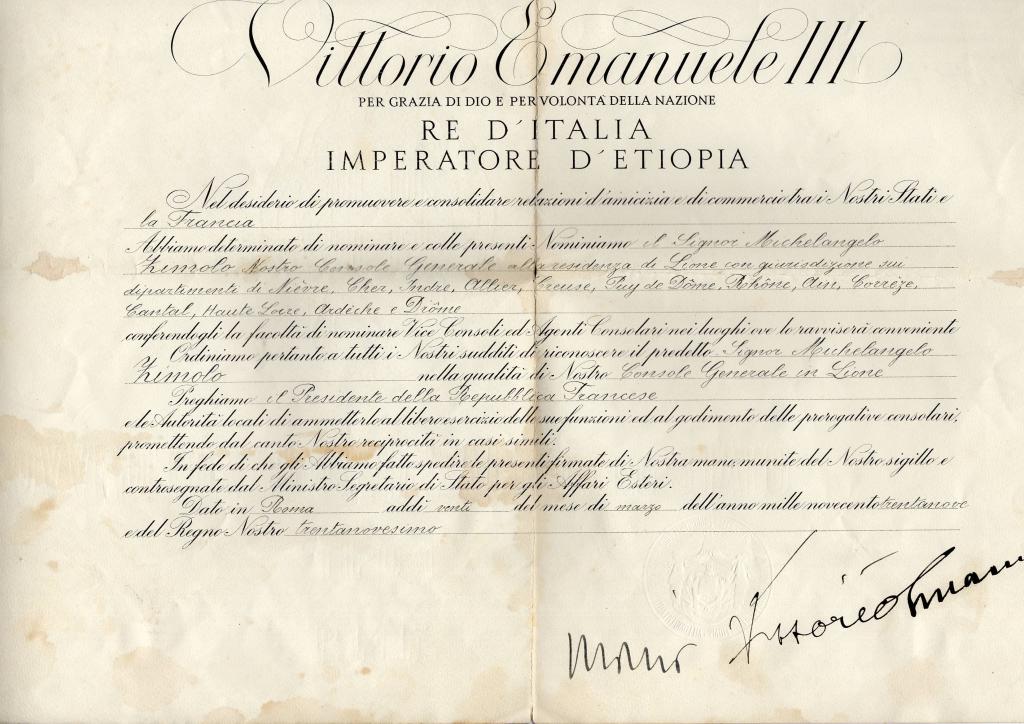 Vittorio Emanuele III
PER GRAZIA DI DIO E PER VOLONTÀ DELLA NAZIONE
RE D'ITALIA
IMPERATORE D'ETIOPIA
Nel desiderio di promuovere e consolidare relazioni d'amicizia e di commercio tra i Nostri Stati e
la Francia
Abbiamo determinato di nominare e colle presenti Nominiamo il Signor Michelangelo
Zimolo Nostro Console Generale alla residenza di Lione con giurisdizione sui
dipartimenti di Nièvre, Cher, Indre, Allier, Creuse, Puy de Dôme, Rhône, Ain, Corrèze,
Cantal, Haute Loire, Ardèche e Drôme
conferendogli la facoltà di nominare Vice Consoli ed Agenti Consolari nei luoghi ove lo ravviserà conveniente
Ordiniamo pertanto a tutti i Nostri sudditi di riconoscere il predetto Signor Michelangelo
Zimolo nella qualità di Nostro Console Generale in Lione
Preghiamo il Presidente della Repubblica Francese
e le Autorità locali di ammetterlo al libero esercizio delle sue funzioni ed al godimento delle prerogative consolari,
promettendo dal canto Nostro reciprocità in casi simili.
In fede di che gli Abbiamo fatto spedire le presenti firmate di Nostra mano, munite del Nostro sigillo e
controsegnate dal Ministro Segretario di Stato per gli Affari Esteri.
Dato in Roma addì venti del mese di marzo dell'anno mille novecento trentanove
e del Regno Nostro trentanovesimo
Vittorio Emanu